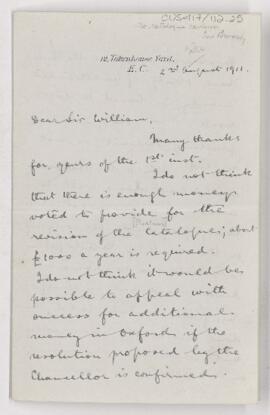 CUS
12, Tokenhouse Yard,
E.C. 2nd August 1911.
Dear Sir William,
Many thanks
for yours of the 1st inst.
I do not think
that there is enough money
voted to provide for the
revision of the Catalogue; about
£1000 a year is required.
I do not think it would be
possible to appeal with
success for additional
money in Oxford if the
resolution proposed by the
Chancellor is confirmed.